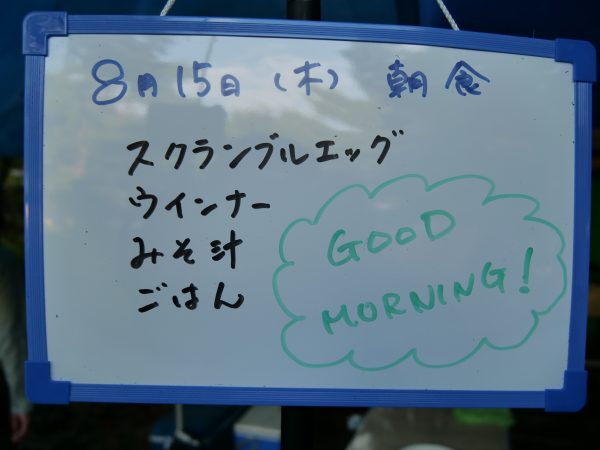 8月15日(木) 朝食
スクランブルエッグ
ウインナー
みそ汁
ごはん
GOOD
MORNING!